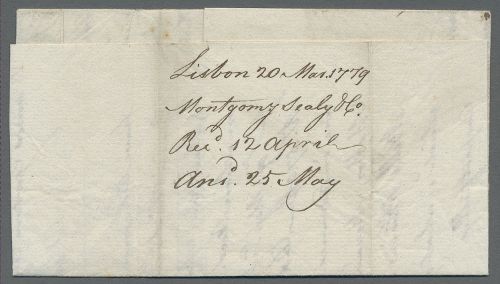 Lisbon 20 Mar. 1779
Montgomy Sealy & Co.
Recd. 12 April
Ansd. 25 May